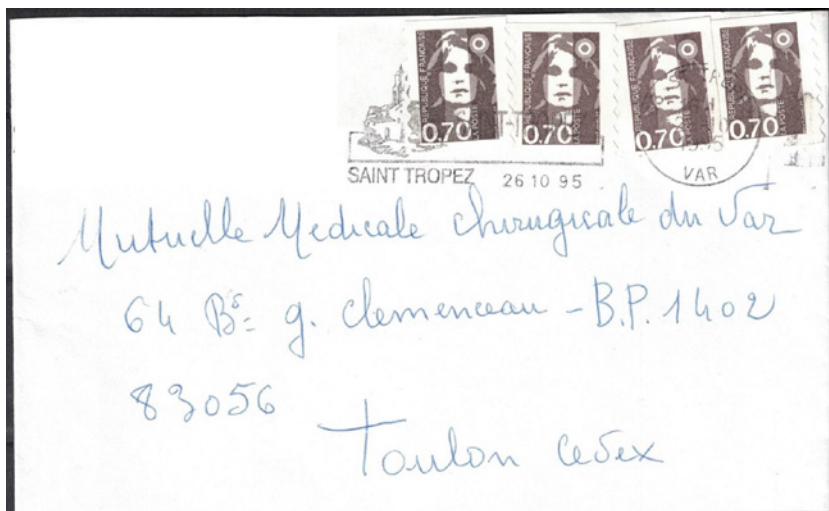 REPUBLIQUE FRANÇAISE 0,70 LA POSTE
REPUBLIQUE FRANÇAISE 0,70 LA POSTE
REPUBLIQUE FRANÇAISE 0,70 LA POSTE
REPUBLIQUE FRANÇAISE 0,70 LA POSTE
SAINT TROPEZ 26 10 95
VAR
Mutuelle Medicale chirurgicale du Var
64 Bᵈ= g. clemenceau - B.P. 1402
83056
Toulon cedex